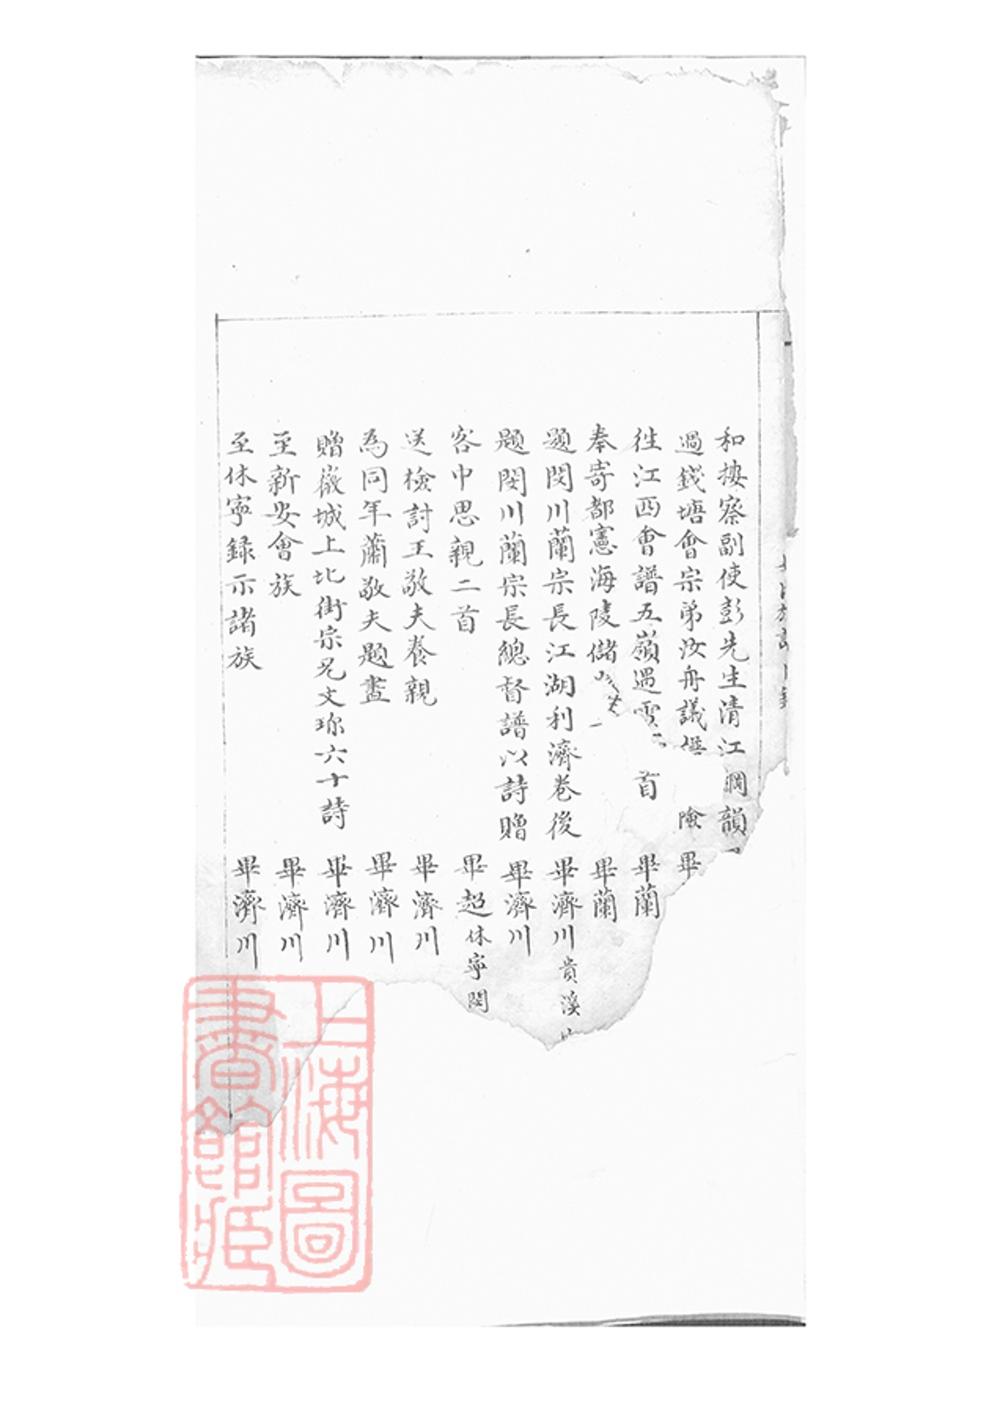 和樓察副使彭先生清江 閘韻
過錢塘會宗弟汝舟議 險 畢
徃江西會譜五嶺遇雪 首 畢蘭
奉寄都憲海陵儲 畢蘭
題閔川蘭宗長江湖利濟卷後 畢濟川貴溪
題閔川蘭宗長總督譜以詩贈 畢濟川
客中思親二首 畢超休寧閔
送檢討王敬夫養親 畢濟川
為同年蕭敬夫題畫 畢濟川
贈徽城上北街宗兄文珎六十詩 畢濟川
至新安會族 畢濟川
至休寧録示諸族 畢濟川
上海圖書館藏